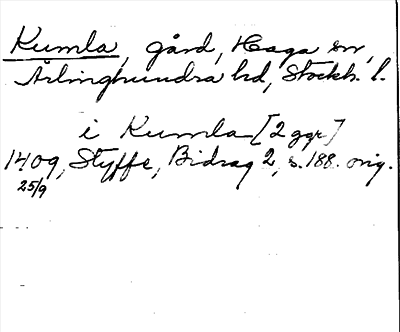 Kumla, gård, Haga sn,
Ärlinghundra hd, Stockh. l.
i Kumla [2 ggr]
1409, Styffe, Bidrag 2, s. 188. orig.
25/9